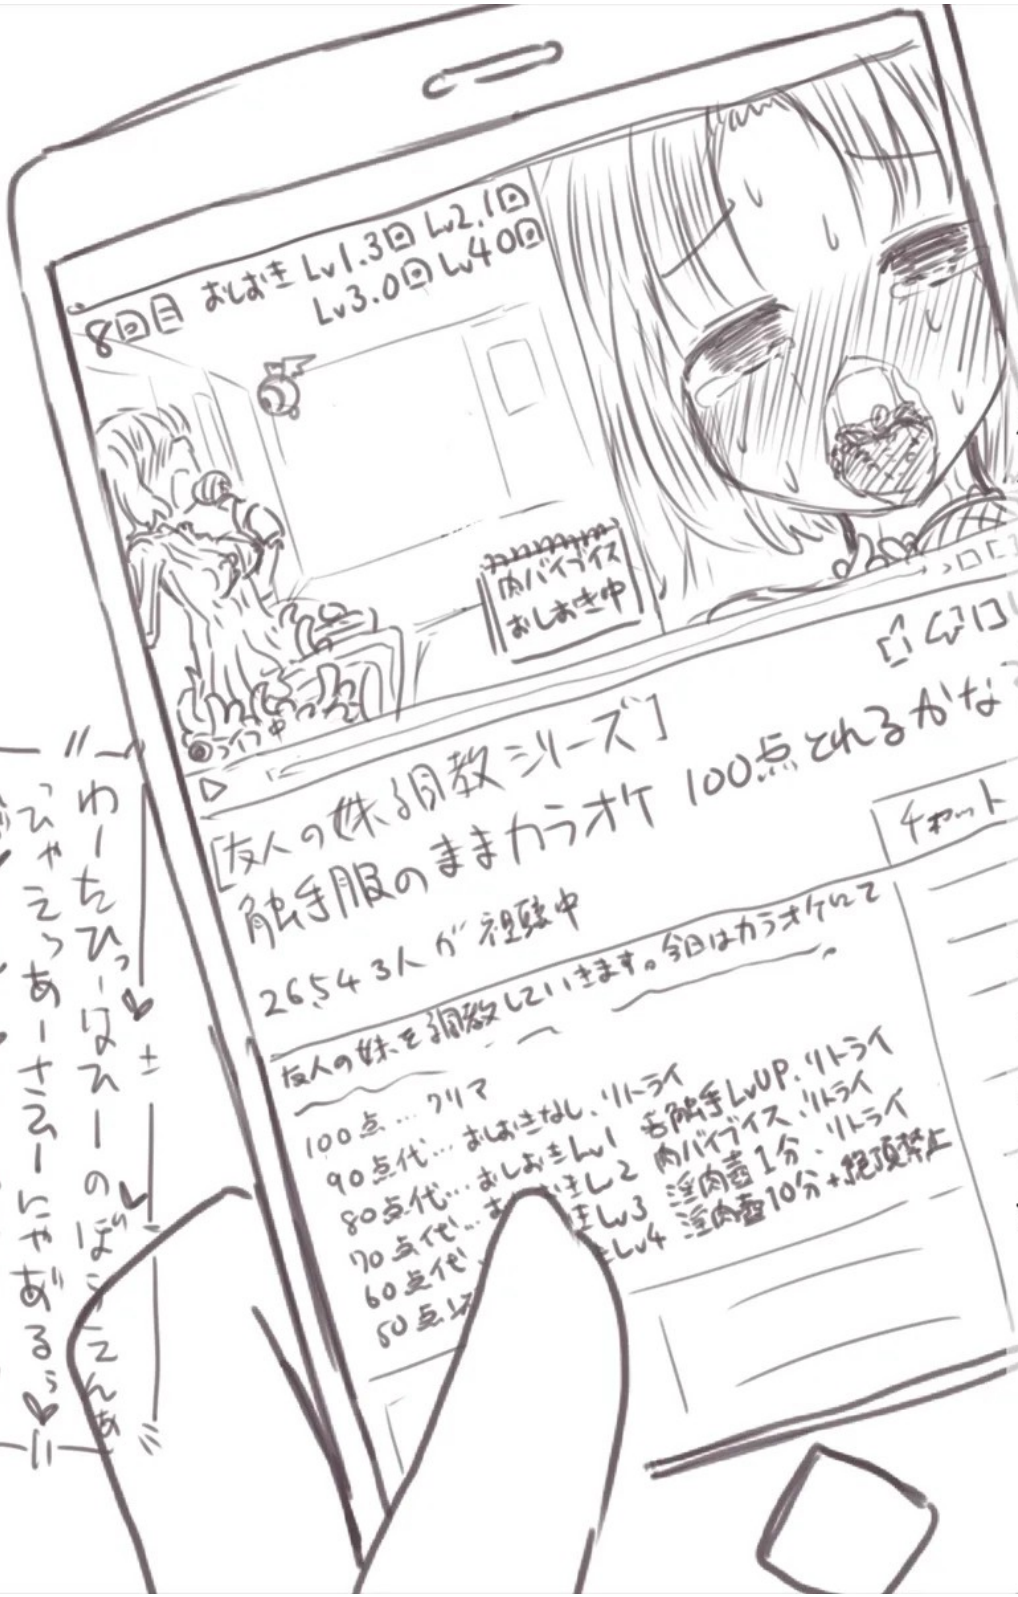 8回目 おしおき Lv1.3回 Lv2.1回
Lv3.0回 Lv4 0回
肉バイブイス
おしおき中
ライブ中
[友人の妹調教シリーズ]
触手服のままカラオケ 100点とれるかな?
26543人が視聴中
チャット
友人の妹を調教していきます。今日はカラオケにて
100点…クリア
90点代…おしおきなし、リトライ
80点代…おしおきLv1 毛触手LvUP、リトライ
70点代… Lv2 肉バイブイス、リトライ
60点代 Lv3 淫肉壺1分、リトライ
50点 Lv4 淫肉壺10分+絶頂禁止